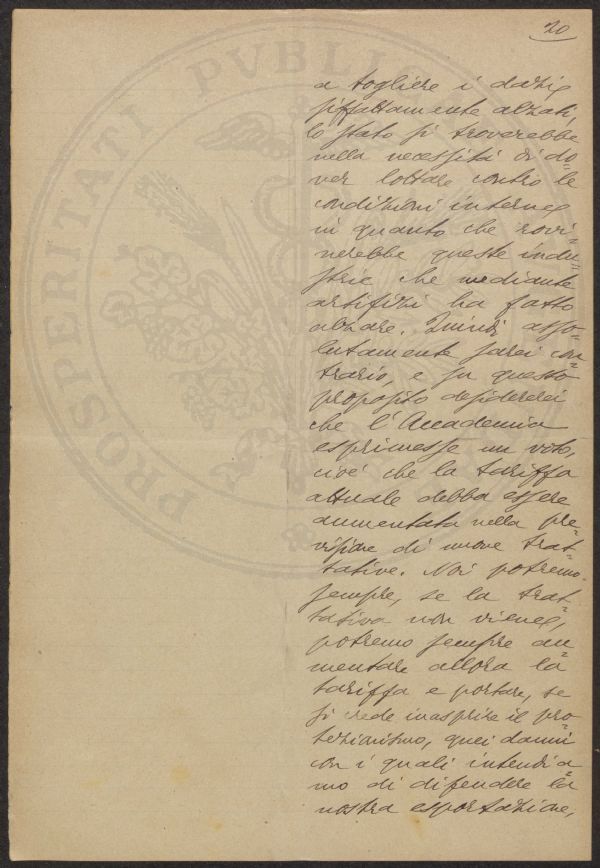 20
a togliere i dazi
siffattamente alzati,
lo stato si troverebbe
nella necessità di do=
ver lottare contro le
condizioni interne
in quanto che rovi=
nerebbe queste indu=
strie che mediante
artifizi ha fatto
alzare. Quindi asso=
lutamente sarei con=
trario, e su questo
proposito desidererei
che l'Accademia
esprimesse un voto,
cioè che la tariffa
attuale debba essere
aumentata nella pre=
visione di nuove trat=
tative. Noi potremo
sempre, se la trat=
tativa non viene,
potremo sempre au=
mentare allora la
tariffa e portare, se
si crede inasprire il pro=
tezionismo, quei danni
con i quali intendia=
mo di difendere la
nostra esportazione,
PROSPERITATI PVBLIC